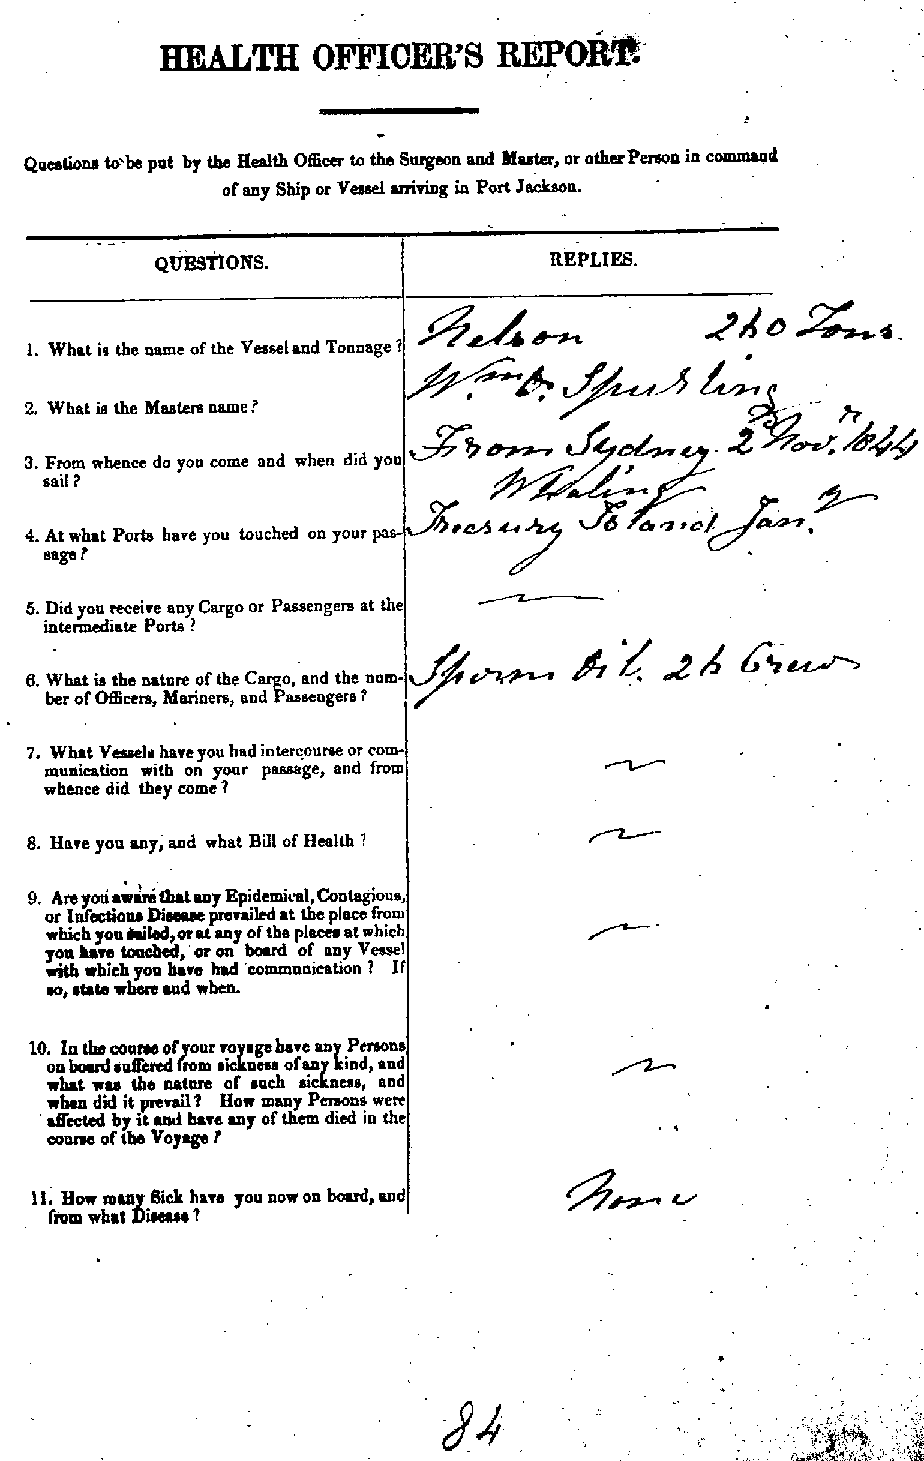 HEALTH OFFICER'S REPORT.
Questions to be put by the Health Officer to the Surgeon and Master, or other Person in command
of any Ship or Vessel arriving in Port Jackson.
QUESTIONS.
REPLIES.
1. What is the name of the Vessel and Tonnage?
Nelson 240 Tons.
2. What is the Masters name?
Wm. D. Spurling
3. From whence do you come and when did you
sail?
From Sydney 2nd Novr. 1844
Whaling
4. At what Ports have you touched on your pas-
sage?
Treasury Island Jany.
5. Did you receive any Cargo or Passengers at the
intermediate Ports?
6. What is the nature of the Cargo, and the num-
ber of Officers, Mariners, and Passengers?
Sperm Oil. 24 Crew
7. What Vessels have you had intercourse or com-
munication with on your passage, and from
whence did they come?
8. Have you any, and what Bill of Health?
9. Are you aware that any Epidemical, Contagious,
or Infectious Disease prevailed at the place from
which you sailed, or at any of the places at which
you have touched, or on board of any Vessel
with which you have had communication? If
so, state where and when.
10. In the course of your voyage have any Persons
on board suffered from sickness of any kind, and
what was the nature of such sickness, and
when did it prevail? How many Persons were
affected by it and have any of them died in the
course of the Voyage?
11. How many Sick have you now on board, and
from what Disease?
None
84